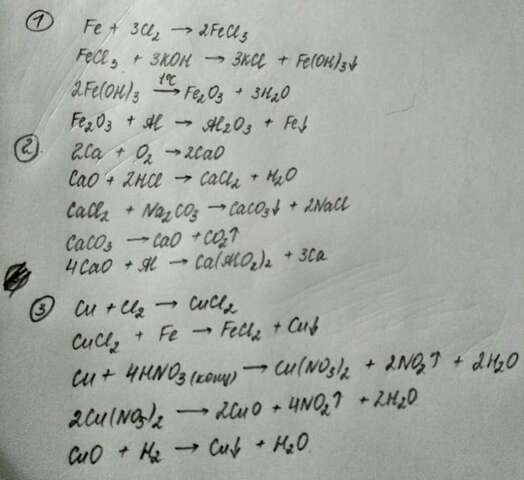 ① Fe + 3Cl₂ → 2FeCl₃
FeCl₃ + 3KOH → 3KCl + Fe(OH)₃↓
2Fe(OH)₃ →(t°C) Fe₂O₃ + 3H₂O
Fe₂O₃ + Al → Al₂O₃ + Fe↓
② 2Ca + O₂ → 2CaO
CaO + 2HCl → CaCl₂ + H₂O
CaCl₂ + Na₂CO₃ → CaCO₃↓ + 2NaCl
CaCO₃ → CaO + CO₂↑
4CaO + Al → Ca(AlO₂)₂ + 3Ca
③ Cu + Cl₂ → CuCl₂
CuCl₂ + Fe → FeCl₂ + Cu↓
Cu + 4HNO₃(конц) → Cu(NO₃)₂ + 2NO₂↑ + 2H₂O
2Cu(NO₃)₂ → 2CuO + 4NO₂↑ + 2H₂O
CuO + H₂ → Cu↓ + H₂O